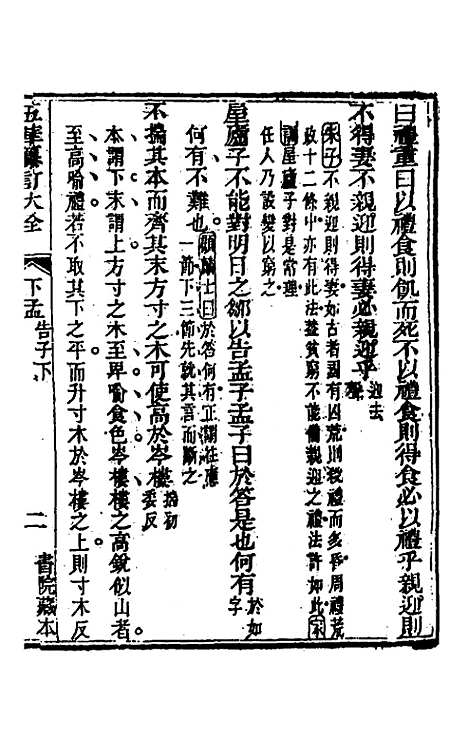 曰禮重曰以禮食則飢而死不以禮食則得食必以禮乎親迎則
不得妻不親迎則得妻必親迎乎迎去聲
朱子曰不親迎則得妻如古者國有凶荒則殺禮而多昏周禮荒
政十二條中亦有此法蓋貧窮不能備親迎之禮法許如此
謂屋廬子對是常理
任人乃設變以窮之
屋廬子不能對明日之鄒以告孟子孟子曰於答是也何有於如字
何有不難也顧麟士曰於答何有正關往應
一節下三節先就其言而斷之
不揣其本而齊其末方寸之木可使高於岑樓揣初委反
本謂下末謂上方寸之木至卑喻食色岑樓樓之高銳似山者
至高喻禮若不取其下之平而升寸木於岑樓之上則寸木反
五華纂訂大全
下孟
告子下
二
書院藏本